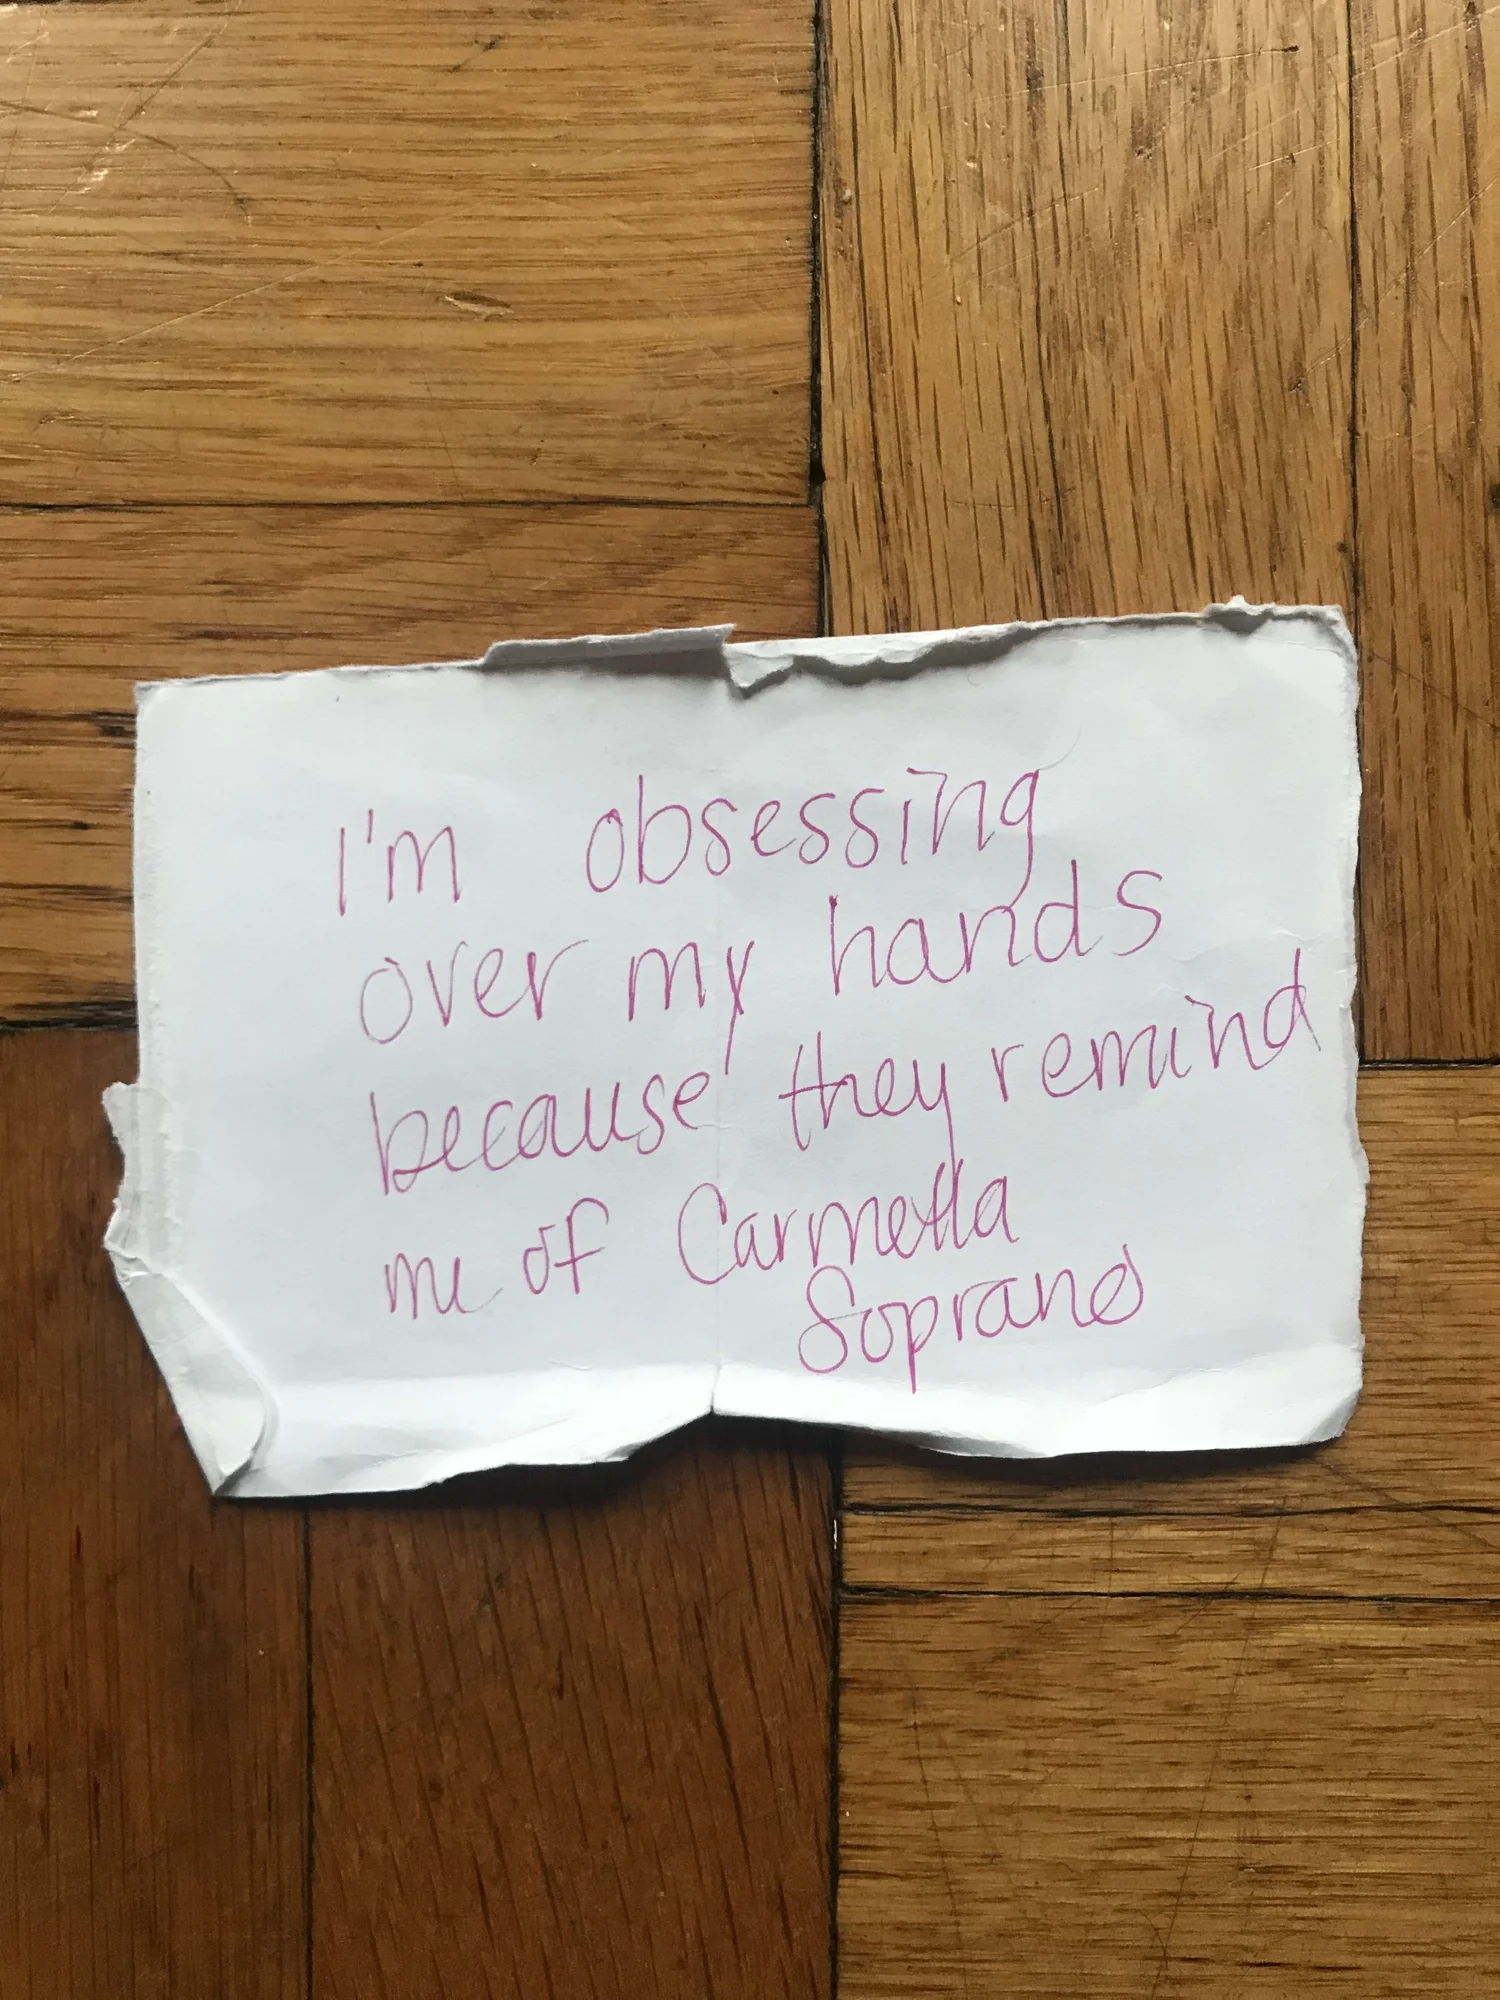 I'm obsessing
over my hands
because they remind
me of Carmella
Soprano